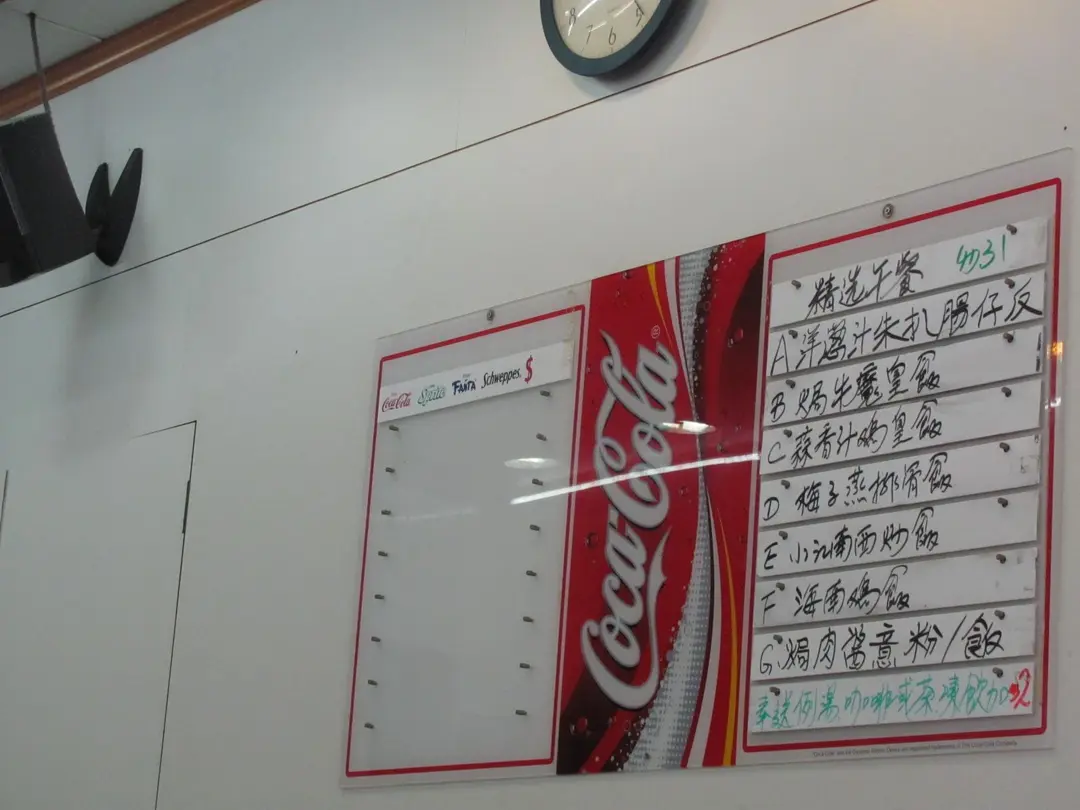 8 7 6
Coca-Cola Sprite FANTA Schweppes $
Coca-Cola ®
精选午餐
A 洋葱汁朱扒腸仔反
B 焗牛
皇飯
C 蒜香汁鸡皇飯
D 梅子蒸排骨飯
E 小江南西炒飯
F 海南鸡飯
G 焗肉醬意粉/飯
奉送例湯咖啡或茶凍飲加